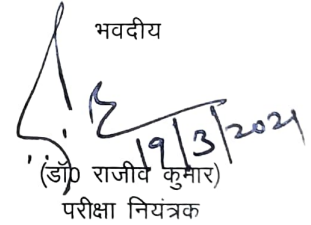 भवदीय
19/3/2021
(डॉ0 राजीव कुमार)
परीक्षा नियंत्रक